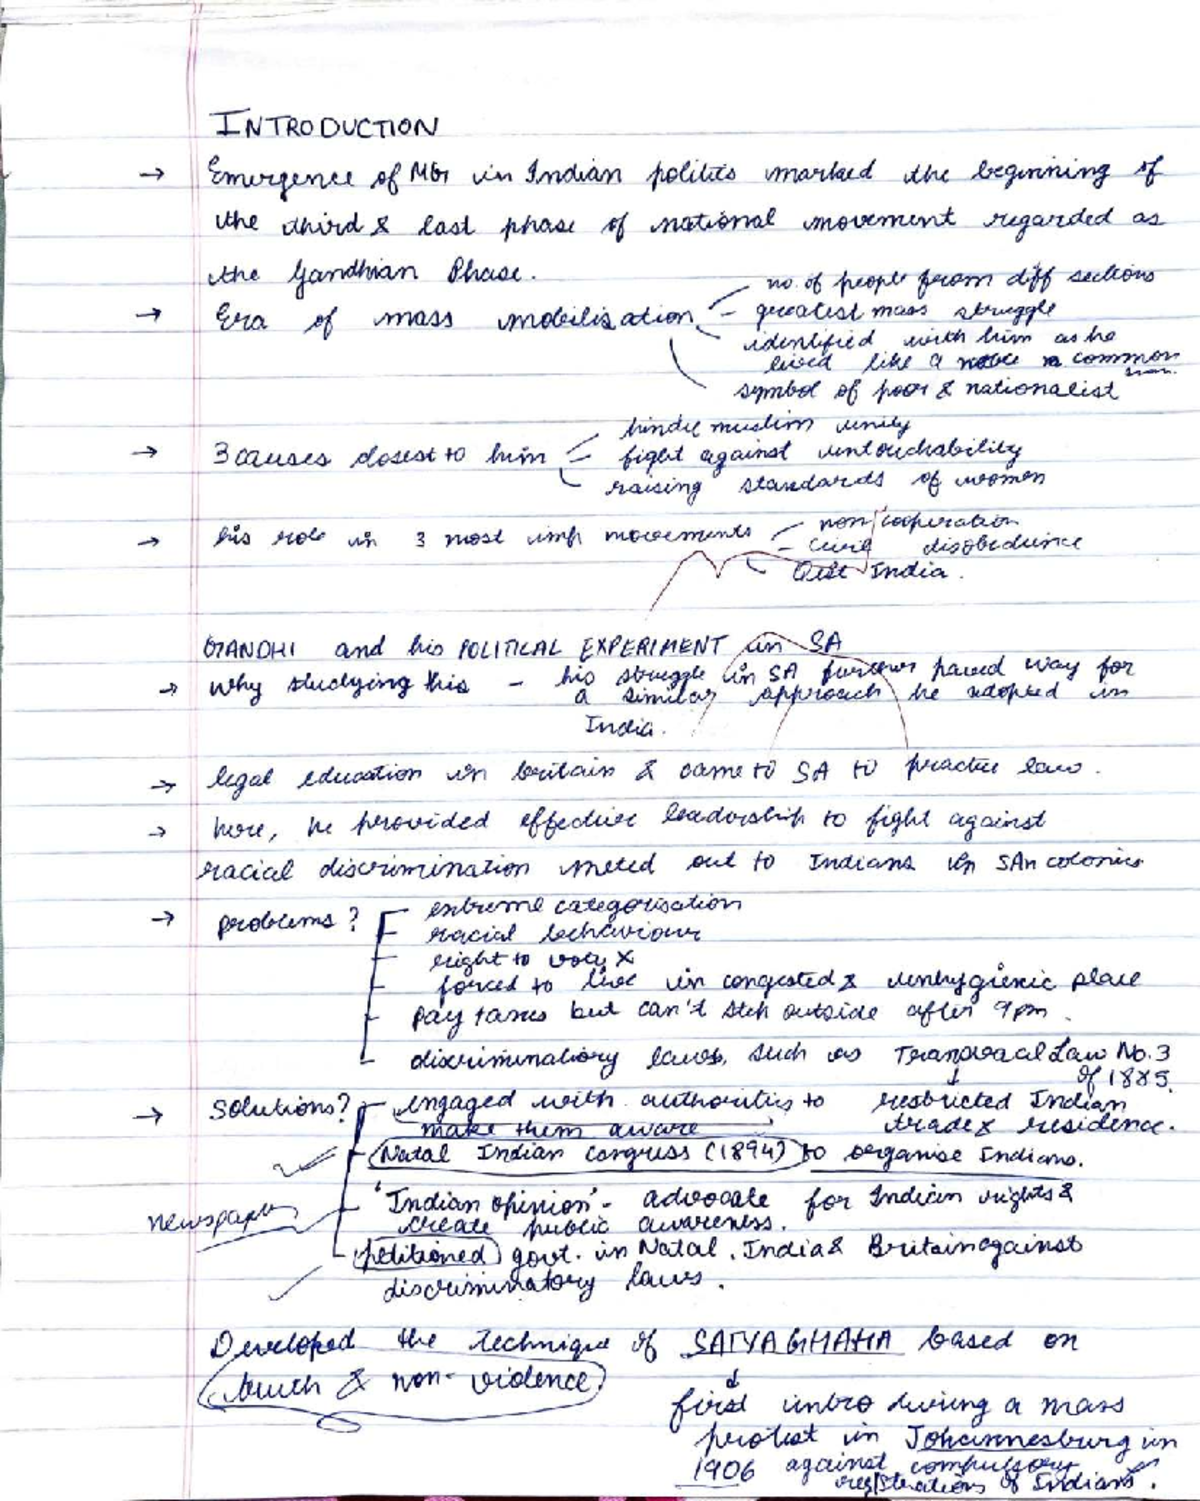 INTRODUCTION
→ Emergence of MG in Indian politics marked the beginning of
the third & last phase of national movement regarded as
the Gandhian Phase.
→ Era of mass mobilisation
- no. of people from diff sections
- greatest mass struggle
- identified with him as he
lived like a common
man.
symbol of poor & nationalist
→ 3 causes closest to him
- hindu muslim unity
- fight against untouchability
- raising standards of women
→ his role in 3 most imp movements
- non cooperation
- civil disobedience
- Quit India.
GANDHI and his POLITICAL EXPERIMENT in SA
→ Why studying this - his struggle in SA further paved way for
a similar approach he adopted in
India.
→ legal education in britain & came to SA to practice law.
→ here, he provided effective leadership to fight against
racial discrimination meted out to Indians in SAn colonies
→ problems?
- extreme categorisation
- racial behaviour
- right to vote x
- forced to live in congested & unhygienic place
- pay taxes but can't step outside after 9pm.
- discriminatiory laws, such as Transvaal Law No. 3
of 1885.
↓
restricted Indian
trade & residence.
→ solutions?
- engaged with authorities to
make them aware
- Natal Indian Congress (1894) to organise Indians.
newspaper
- 'Indian opinion' - advocate for Indian rights &
create public awareness.
- petitioned govt. in Natal, India & Britain against
discriminatory laws.
Developed the technique of SATYAGHAHA based on
truth & non-violence
↓
first intro during a mass
protest in Johannesburg in
1906 against compulsory
registrations of Indians.